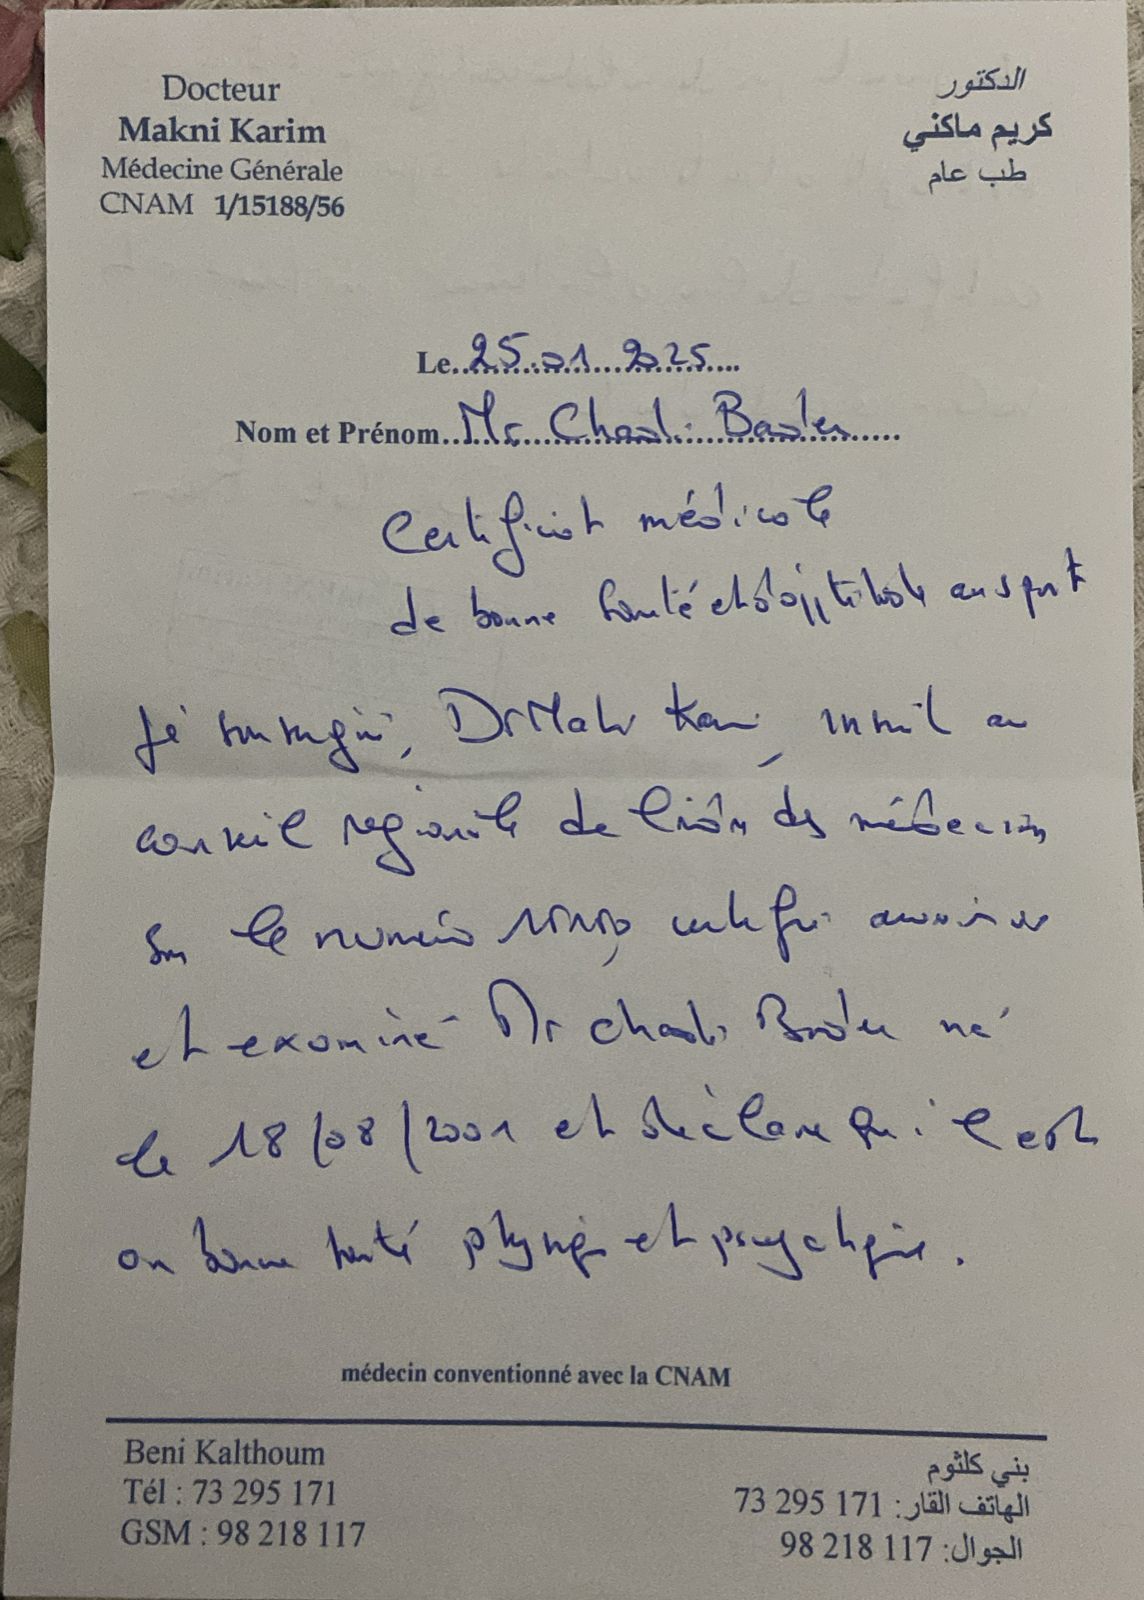 Docteur
Makni Karim
Médecine Générale
CNAM 1/15188/56
الدكتور
كريم ماكني
طب عام
Le 25.01.2025
Nom et Prénom Mr Chadli Bader
Certificat médicale
de bonne santé et d'aptitude au sport
Je soussigné, Dr Makni Karim, inscrit au
conseil régionale de l'ordre des médecins
sous le numéro certifie avoir vu
et examiné Mr Chadli Bader né
le 18/08/2001 et déclare qu'il est
en bonne santé physique et psychique.
médecin conventionné avec la CNAM
Beni Kalthoum
Tél : 73 295 171
GSM : 98 218 117
بني كلثوم
الهاتف القار: 171 295 73
الجوال: 117 218 98